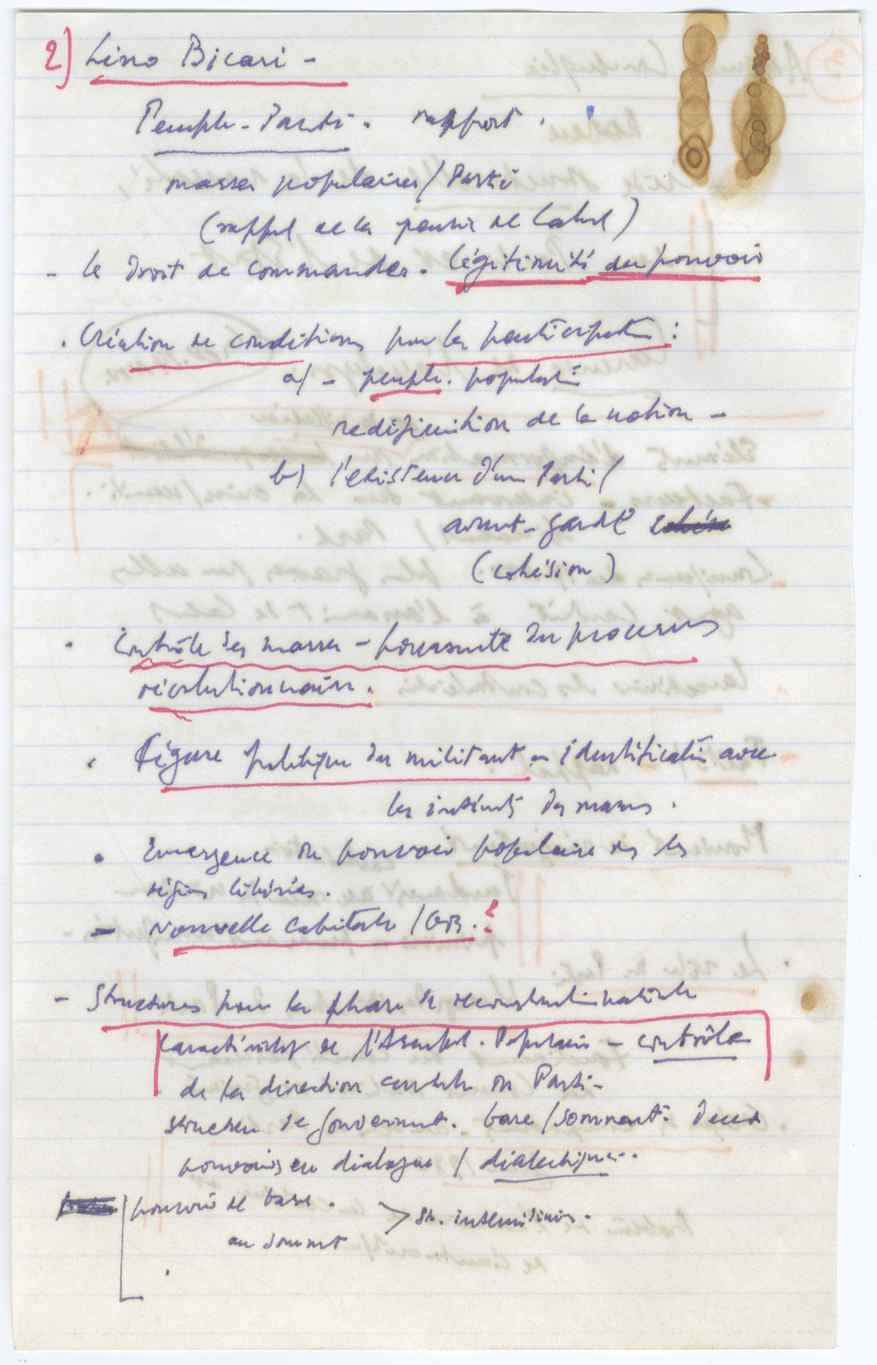 2) Lino Bicari -
Peuple - Parti. rapport.
masses populaires / Parti
(rappel de la pensée de Cabral)
- le droit de commander. légitimité du pouvoir
. Création de conditions pour la participation :
a) - peuple. population
redéfinition de la nation -
b) l'existence d'un Parti /
avant-garde
(cohésion)
. Contrôle des masses - poursuite du processus
révolutionnaire.
. Figure politique du militant = identification avec
les intérêts des masses.
. Emergence du pouvoir populaire ds les
régions libérées.
- Nouvelle capitale / GB. ?
- Structures pour la phase de reconstruction nationale
caractéristiq de l'Assembl. Populaire - contrôle
de la direction centrale du Parti -
structure de gouvernemt. base / sommet. Deux
pouvoirs en dialogue / dialectique.
pouvoir de base.
au sommet
> St. intermédiaires.